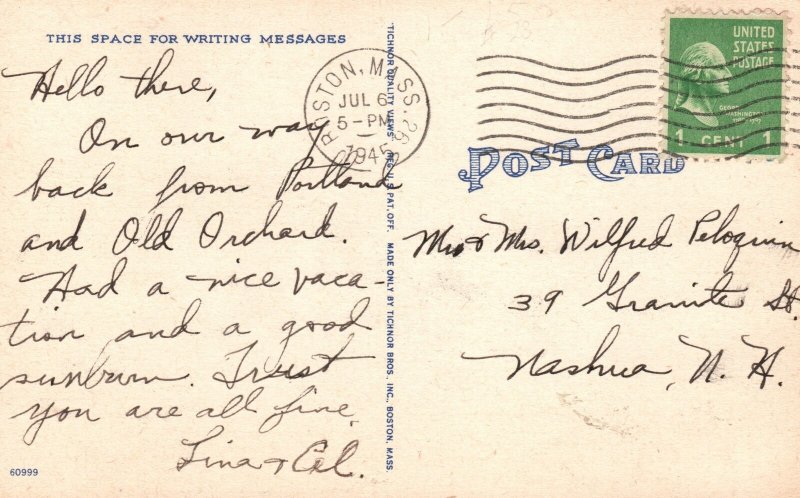 THIS SPACE FOR WRITING MESSAGES
Hello there,
On our way
back from Portland
and Old Orchard.
Had a nice vaca-
tion and a good
sunburn. Trust
you are all fine.
Lina & Al.
60999
TICHNOR QUALITY VIEWS REG. U.S. PAT. OFF. MADE ONLY BY TICHNOR BROS., INC., BOSTON, MASS.
BOSTON, MASS.
JUL 6
5-PM
1945
UNITED
STATES
POSTAGE
GEORGE
WASHINGTON
1 CENT 1
POST CARD
Mr & Mrs. Wilfred Peloquin
39 Granite St.
Nashua, N. H.